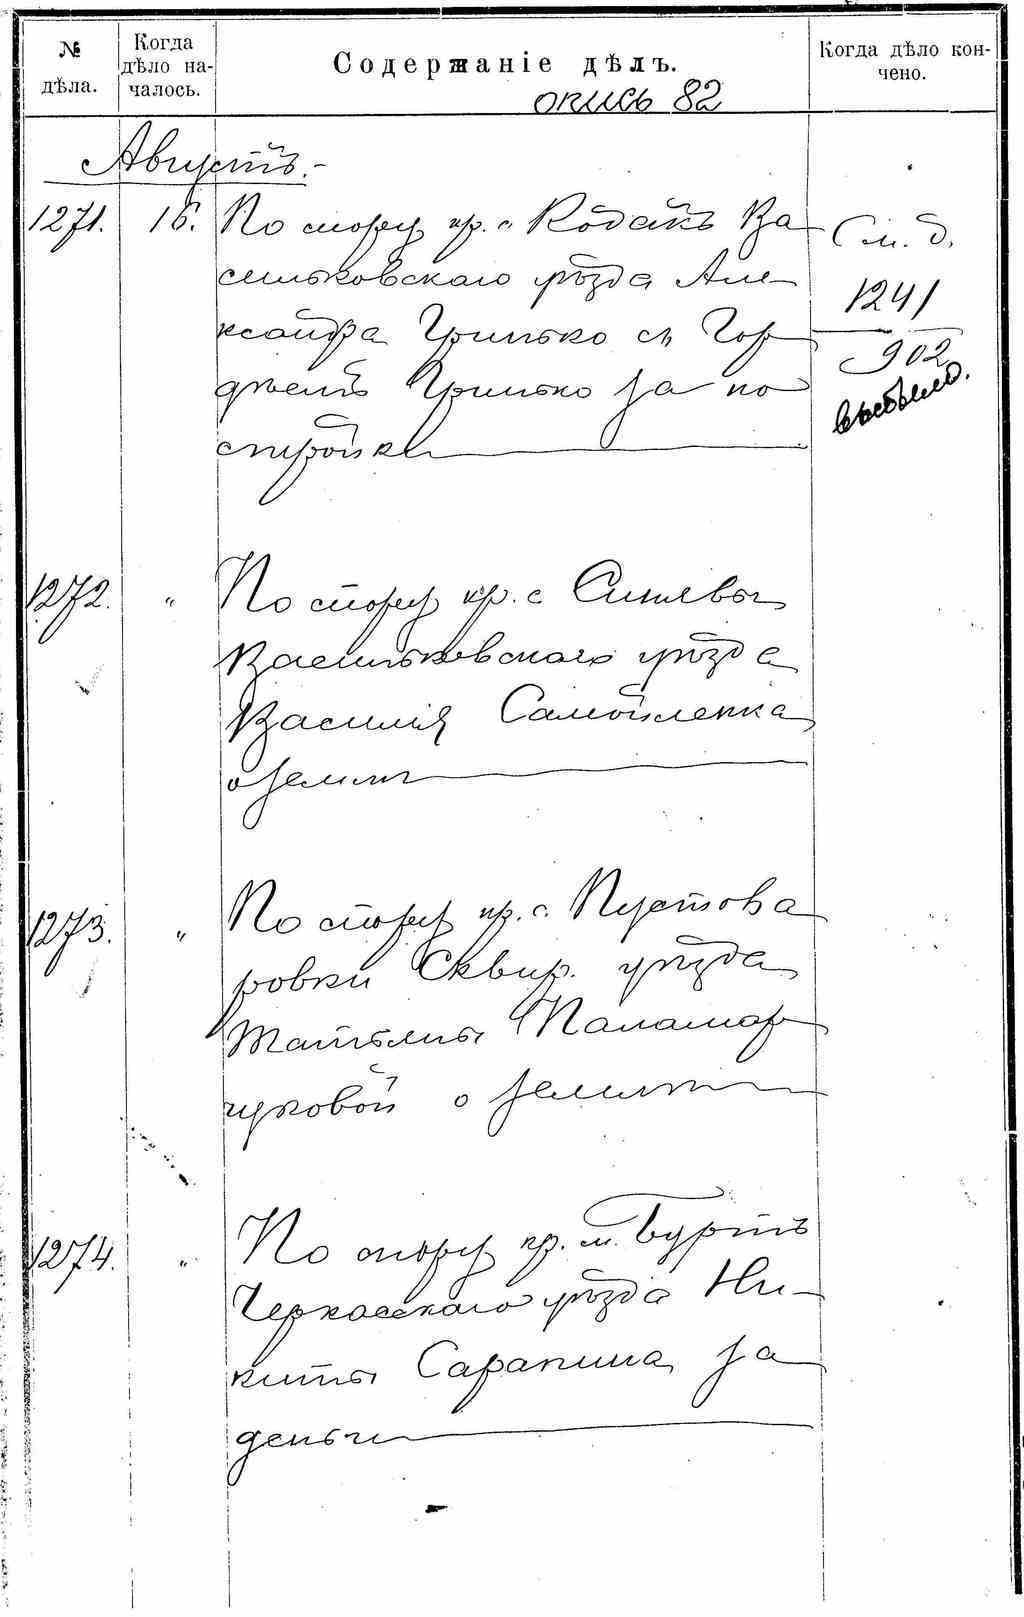 № дѣла.
Когда дѣло началось.
Содержаніе дѣлъ.
Когда дѣло кончено.
опись 82
Августъ.
1271. 16. По спору кр. с Кодакъ Ва
сильковскаго уѣзда Але-
ксандра Грицько съ Гор
дѣемъ Грицько за по
стройки
См. д.
1241
902
выбыло.
1272. " По спору кр. с Синявы
Васильковскаго уѣзда
Василія Самойленка
о землѣ
1273. " По спору кр. с. Пустова
ровки Сквир. уѣзда
Татьяны Паламар
чуковой о землѣ
1274. " По спору кр. м. Буртъ
Черкасскаго уѣзда Ни-
киты Сарапина за
деньги